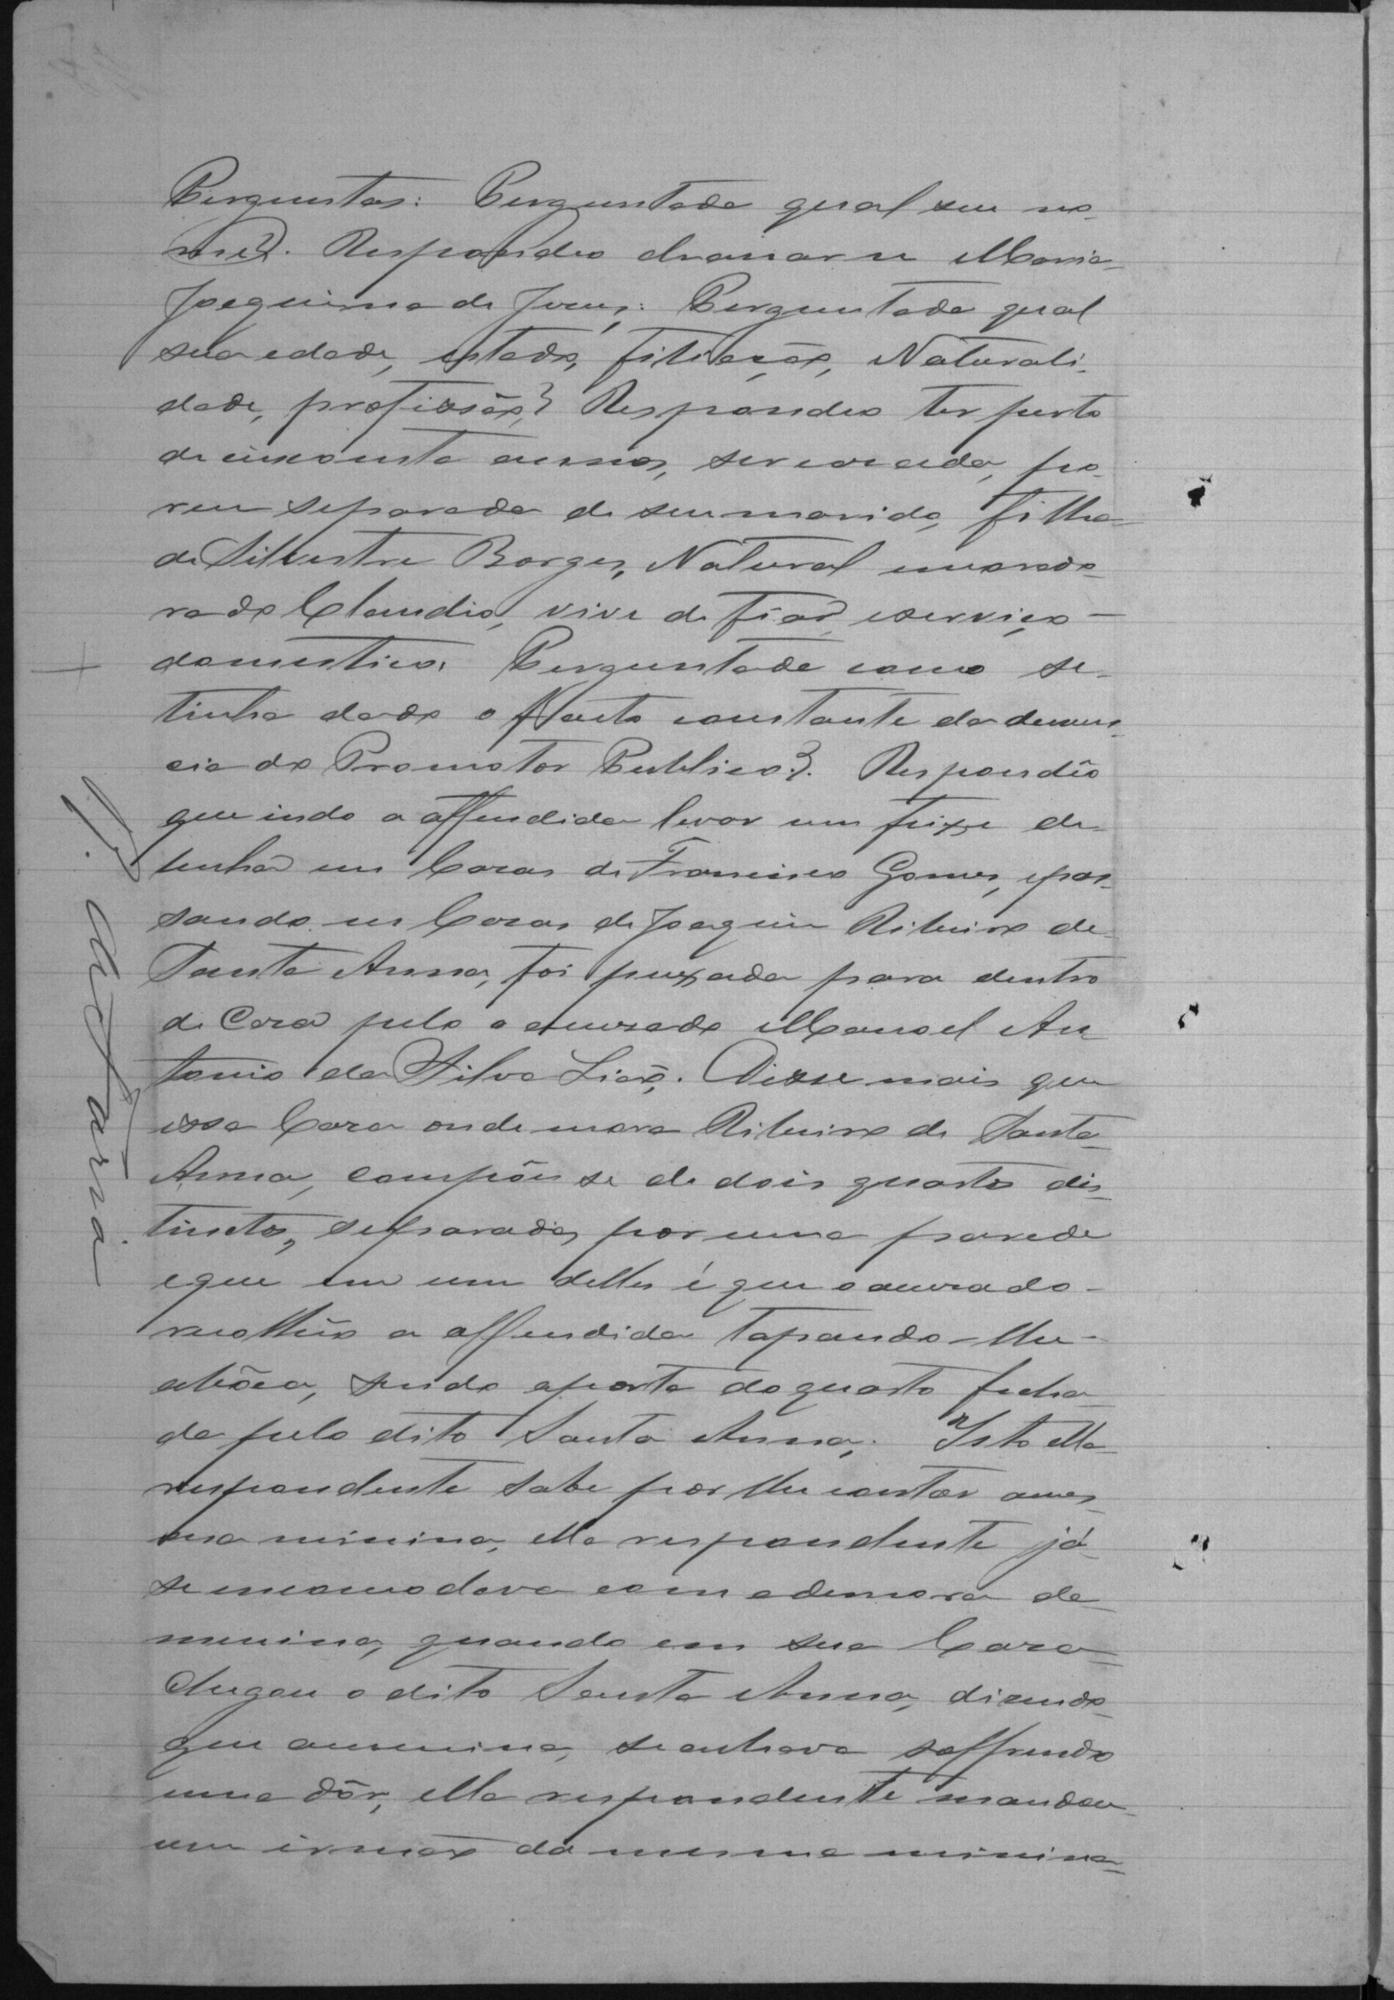 Perguntas: Perguntada qual seu no-
me?. Respondeo chamar se Maria
Joaquina de Jesus: Perguntada qual
sua edade, estado, filiação, Naturali-
dade, profissão? Respondeo ter perto
de cincoenta annos, ser casada, po-
rem separada de seu marido, filha
de Silvestre Borges, Natural e morado-
ra do Claudio, vive de fiar e serviço
domestico. Perguntada como se
tinha dado o facto constante da denun-
cia do Promotor Publico?. Respondêo
que indo a offendida levar um feixe de
lenha em Casas de Francisco Gomes, e pas-
sando em Casas de Joaquim Ribeiro de
Santa Anna, foi puxada para dentro
de Casa pelo accusado Manoel An-
tonio da Silva Lião. Disse mais que
essa Casa onde mora Ribeiro de Santa
Anna, compõe se de dois quartos dis-
tinctos, separados por uma parede
e que em um delles é que o accusado
recolhêo a offendida tapando-lhe
a bôca, sendo a porta do quarto fecha-
da pelo dito Santa Anna. Isto ella
respondente sabe por lhe contar a mes-
ma minina, ella respondente já
se incomodava com a demora da
menina, quando em sua Casa
Chegou o dito Santa Anna, dizendo
que a menina, se achava soffrendo
uma dôr, ella respondente mandou
um irmão da mesma minina